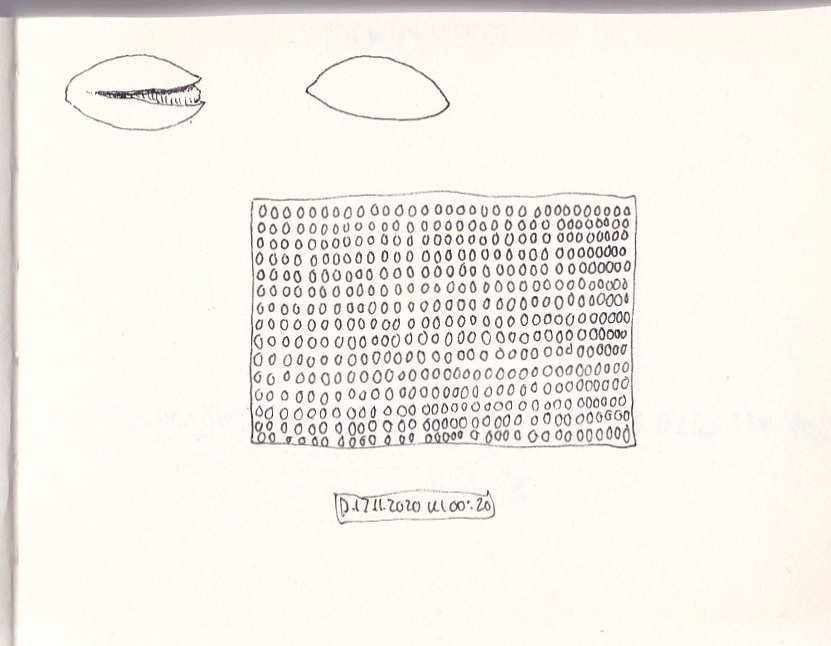 D.17.11.2020 kl 00:.20